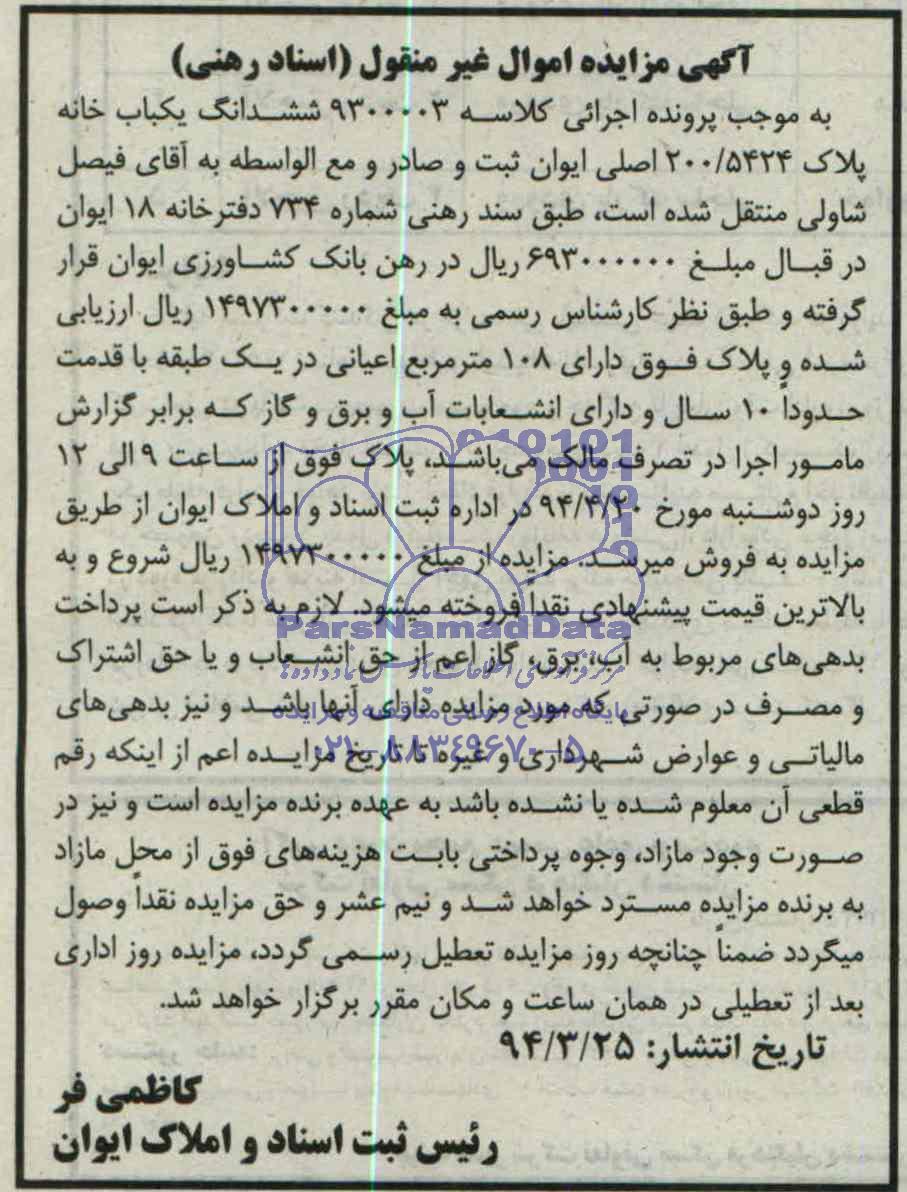 آگهی مزایده اموال غیر منقول (اسناد رهنی)
به موجب پرونده اجرائی کلاسه ۹۳۰۰۰۰۳ ششدانگ یکباب خانه
پلاک ۲۰۰/۵۴۲۴ اصلی ایوان ثبت و صادر و مع الواسطه به آقای فیصل
شاولی منتقل شده است، طبق سند رهنی شماره ۷۳۴ دفترخانه ۱۸ ایوان
در قبال مبلغ ۶۹۳۰۰۰۰۰۰ ریال در رهن بانک کشاورزی ایوان قرار
گرفته و طبق نظر کارشناس رسمی به مبلغ ۱۴۹۷۳۰۰۰۰۰ ریال ارزیابی
شده و پلاک فوق دارای ۱۰۸ مترمربع اعیانی در یک طبقه با قدمت
حدوداً ۱۰ سال و دارای انشعابات آب و برق و گاز که برابر گزارش
مامور اجرا در تصرف مالک می‌باشد، پلاک فوق از ساعت ۹ الی ۱۲
روز دوشنبه مورخ ۹۴/۴/۲۰ در اداره ثبت اسناد و املاک ایوان از طریق
مزایده به فروش میرسد. مزایده از مبلغ ۱۴۹۷۳۰۰۰۰۰ ریال شروع و به
بالاترین قیمت پیشنهادی نقداً فروخته میشود. لازم به ذکر است پرداخت
ParsNamadData
بدهی‌های مربوط به آب، برق، گاز اعم از حق انشعاب و یا حق اشتراک
مرکز فرآوری اطلاعات پارس نماد داده‌ها
و مصرف در صورتی که مورد مزایده دارای آنها باشد و نیز بدهی‌های
پایگاه اطلاع رسانی مناقصه و مزایده
مالیاتی و عوارض شهرداری و غیره تا تاریخ مزایده اعم از اینکه رقم
۰۲۱-۸۸۳۴۹۶۷۰-۵
قطعی آن معلوم شده یا نشده باشد به عهده برنده مزایده است و نیز در
صورت وجود مازاد، وجوه پرداختی بابت هزینه‌های فوق از محل مازاد
به برنده مزایده مسترد خواهد شد و نیم عشر و حق مزایده نقداً وصول
میگردد ضمناً چنانچه روز مزایده تعطیل رسمی گردد، مزایده روز اداری
بعد از تعطیلی در همان ساعت و مکان مقرر برگزار خواهد شد.
تاریخ انتشار: ۹۴/۳/۲۵
کاظمی فر
رئیس ثبت اسناد و املاک ایوان